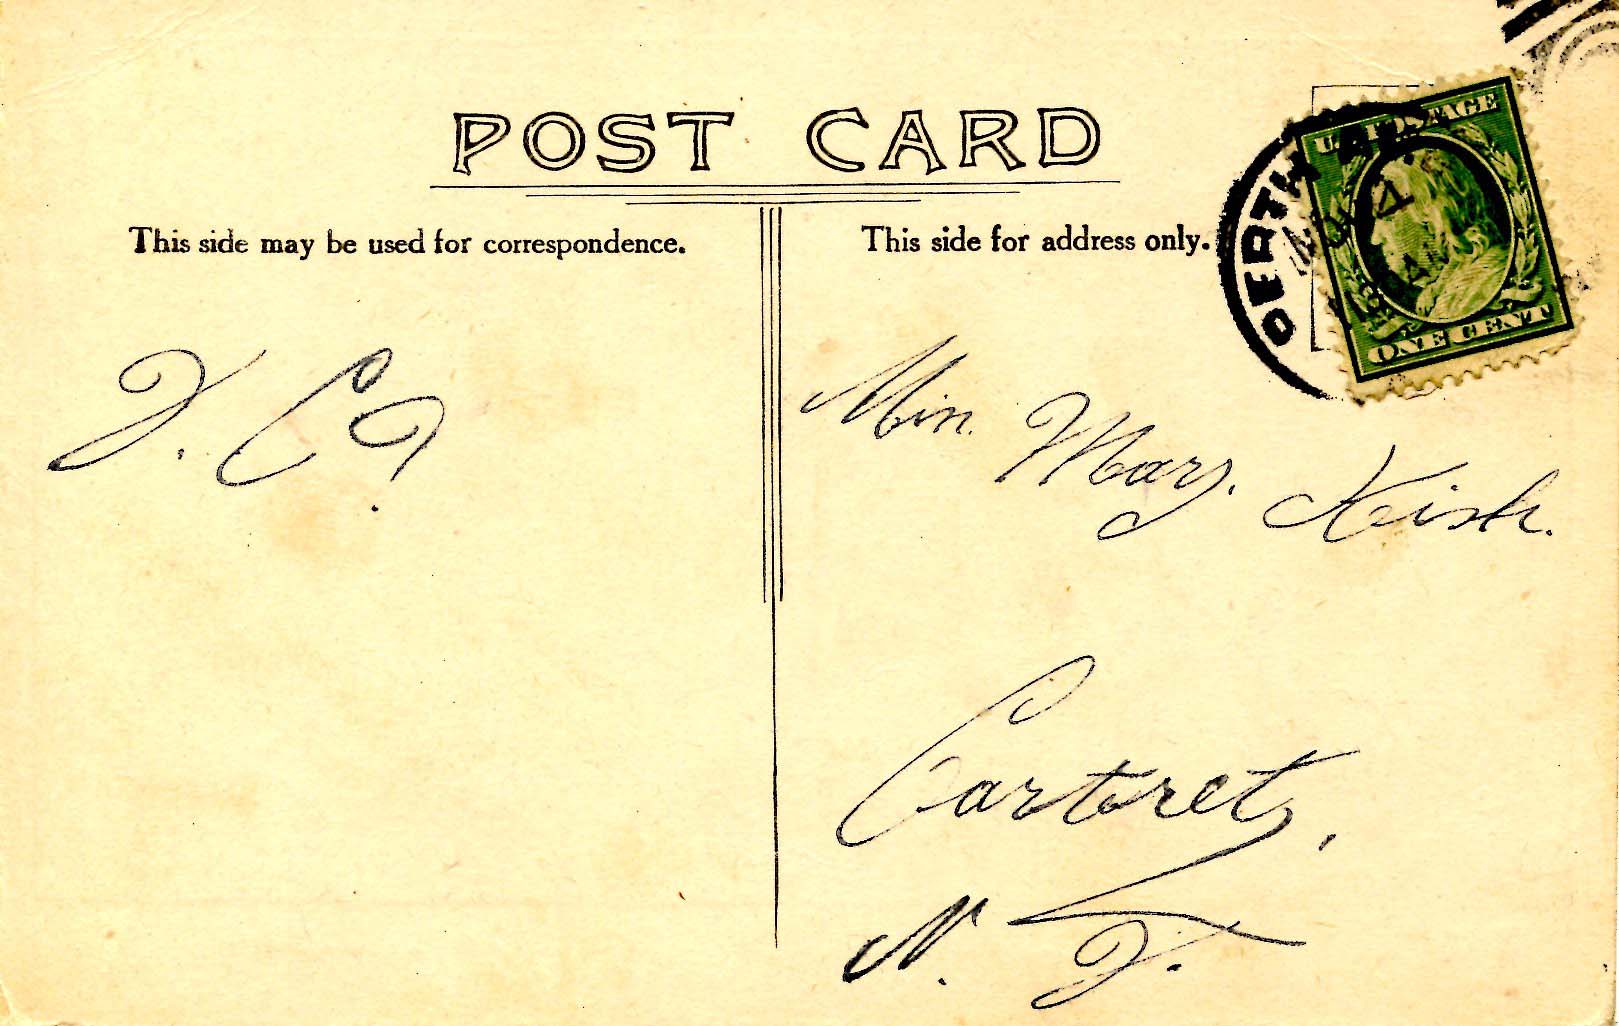 POST CARD
This side may be used for correspondence.
This side for address only.
U.S. POSTAGE
ONE CENT
PERTH
AM
J. C.
Miss. Mary. Kish.
Carteret,
N. J.